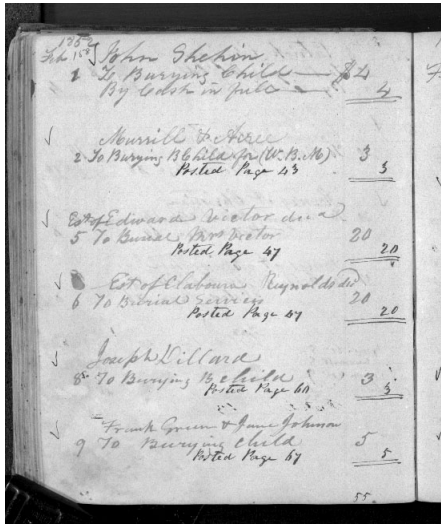 1858
Feb 1st John Shehan
1 To Burying Child — $4
By Cash in full — 4
Murrill & Acree
2 To Burying B Child for (W.B.M) 3
Posted Page 43 3
Est of Edward Victor
5 To Burial Mrs Victor 20
Posted Page 47 20
Est of Claboure Reynolds
6 To Burial Services 20
Posted Page 47 20
Joseph Dillard
8 To Burying B child 3
Posted Page 60 3
Frank Green & Jane Johnson
9 To Burying Child 5
Posted Page 67 5
55